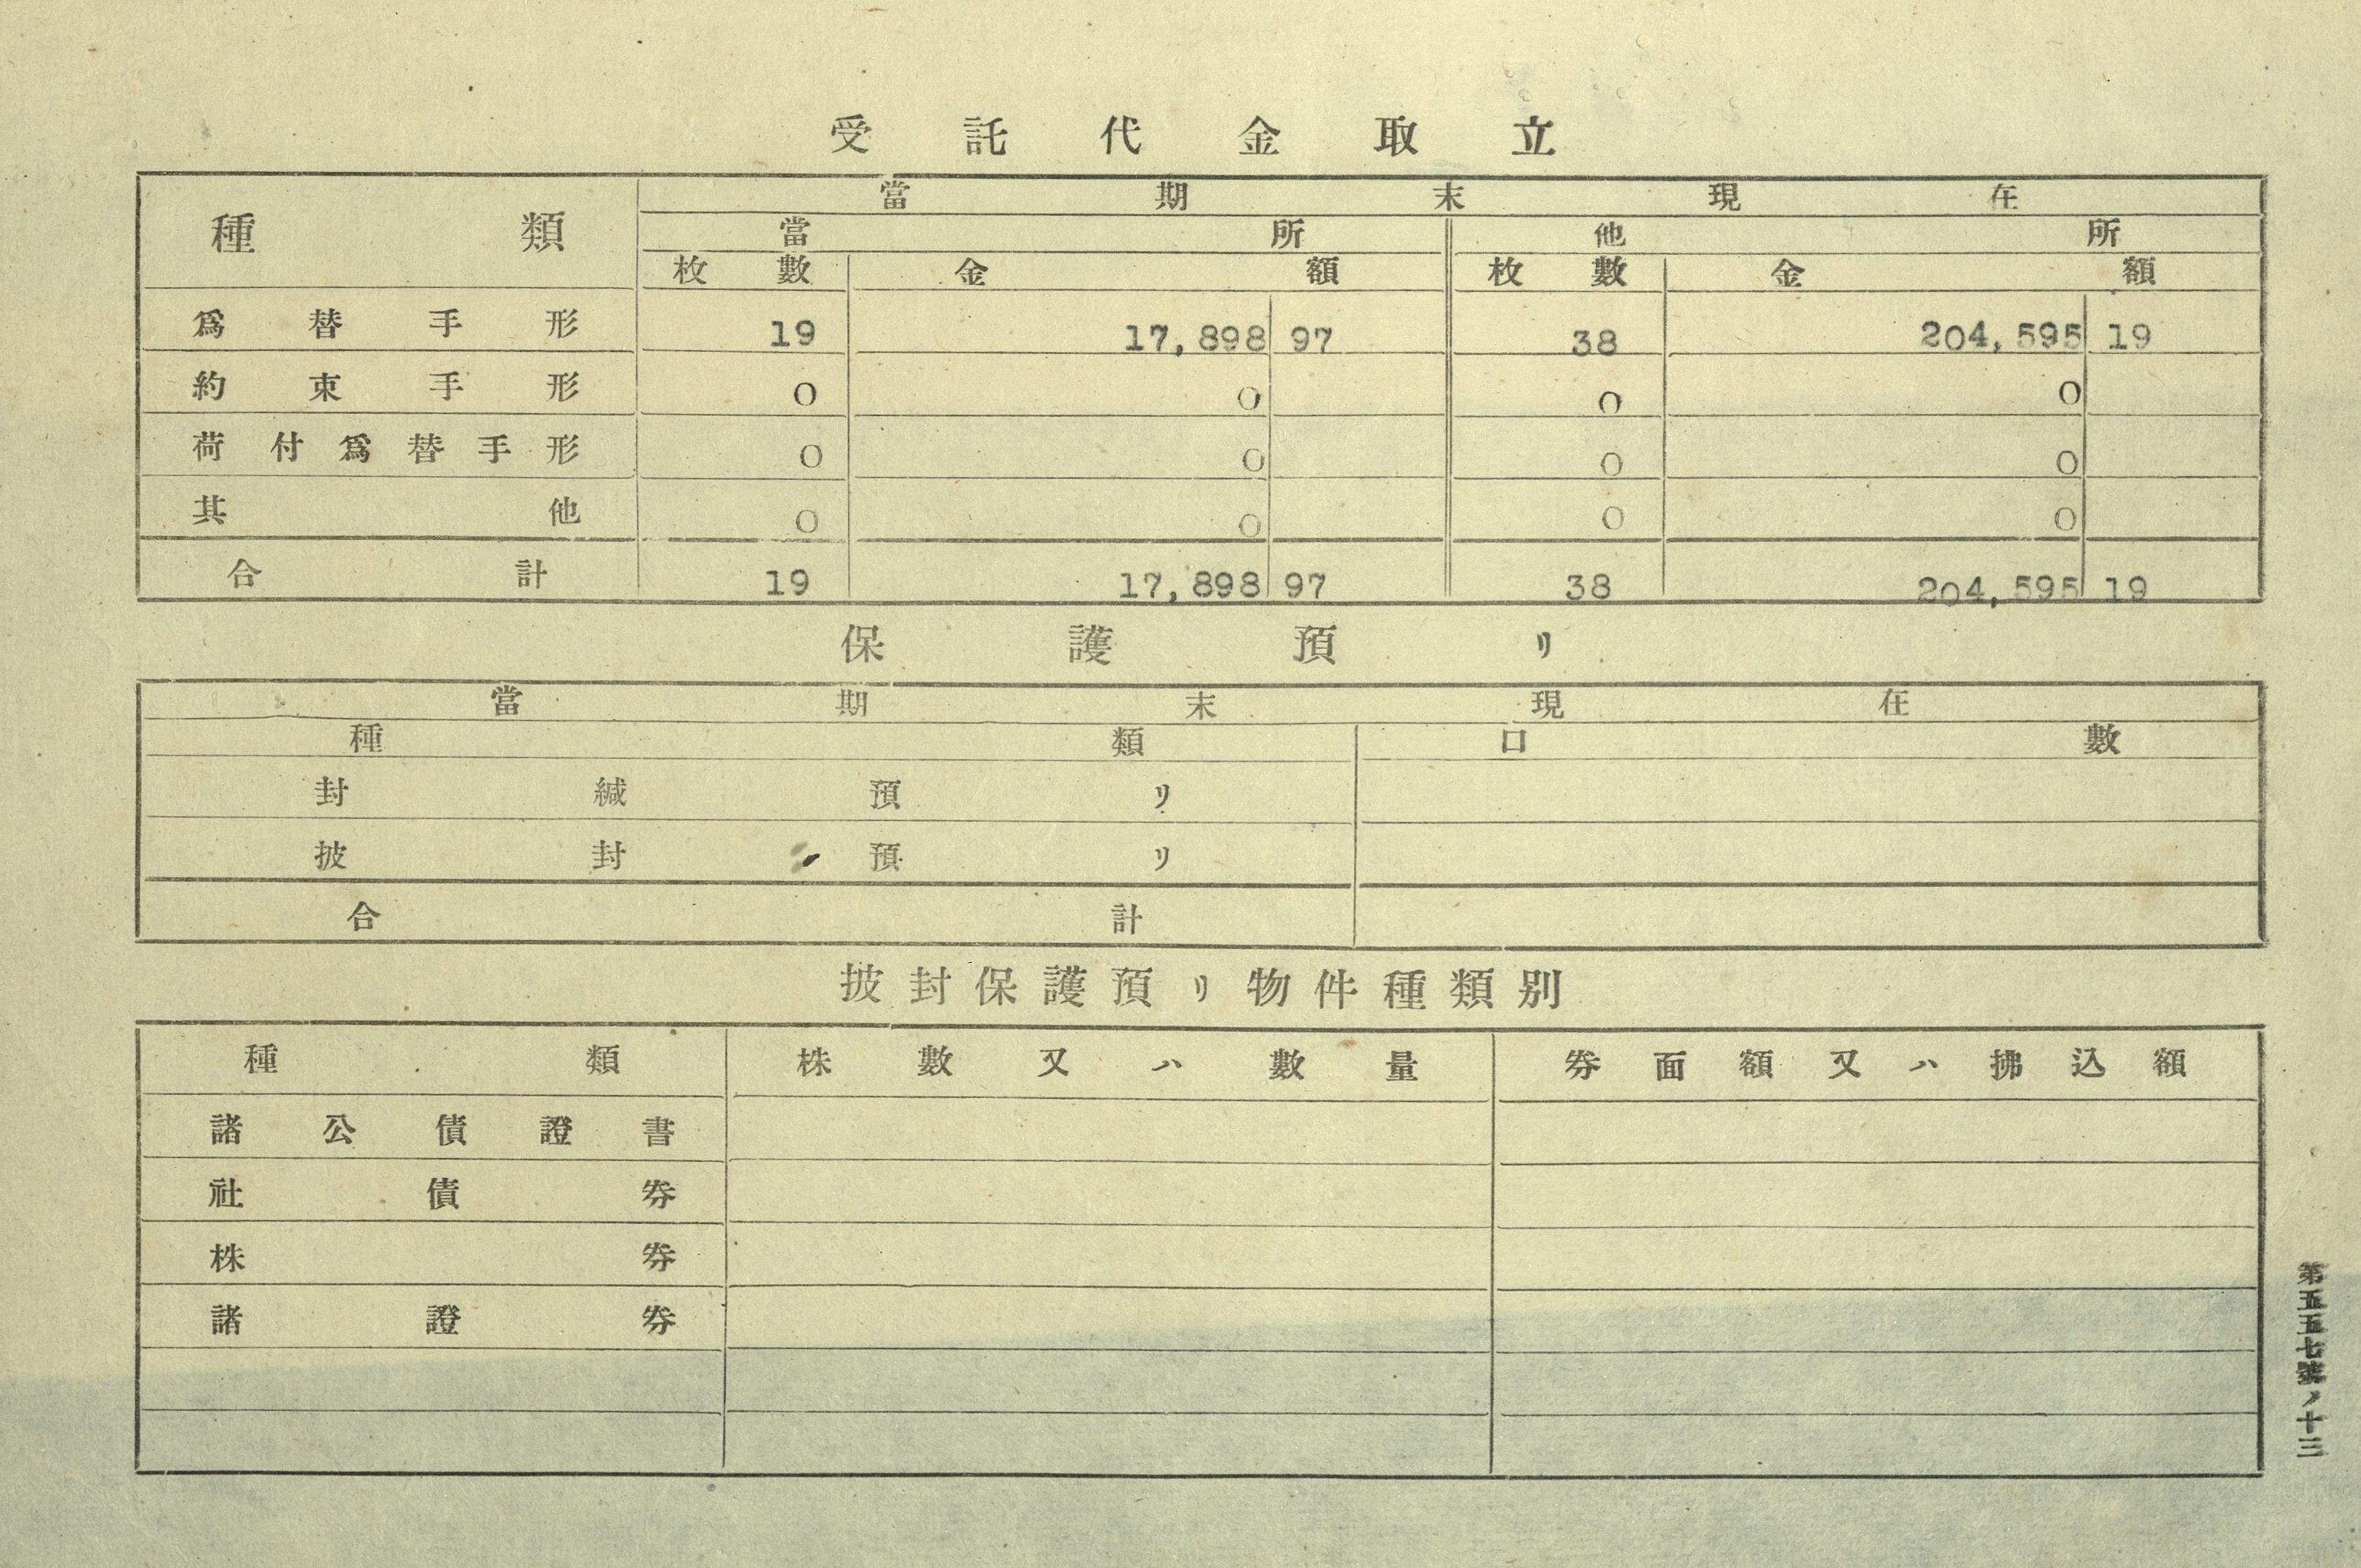 受託代金取立
種類 當期末現在
當所 他所
枚數 金額 枚數 金額
爲替手形 19 17,898 97 38 204,595 19
約束手形 0 0 0 0
荷付爲替手形 0 0 0 0
其他 0 0 0 0
合計 19 17,898 97 38 204,595 19
保護預リ
當期末現在
種類 口數
封緘預リ
披封預リ
合計
披封保護預リ物件種類別
種類 株數又ハ數量 券面額又ハ拂込額
諸公債證書
社債券
株券
諸證券
第五五七號ノ十三